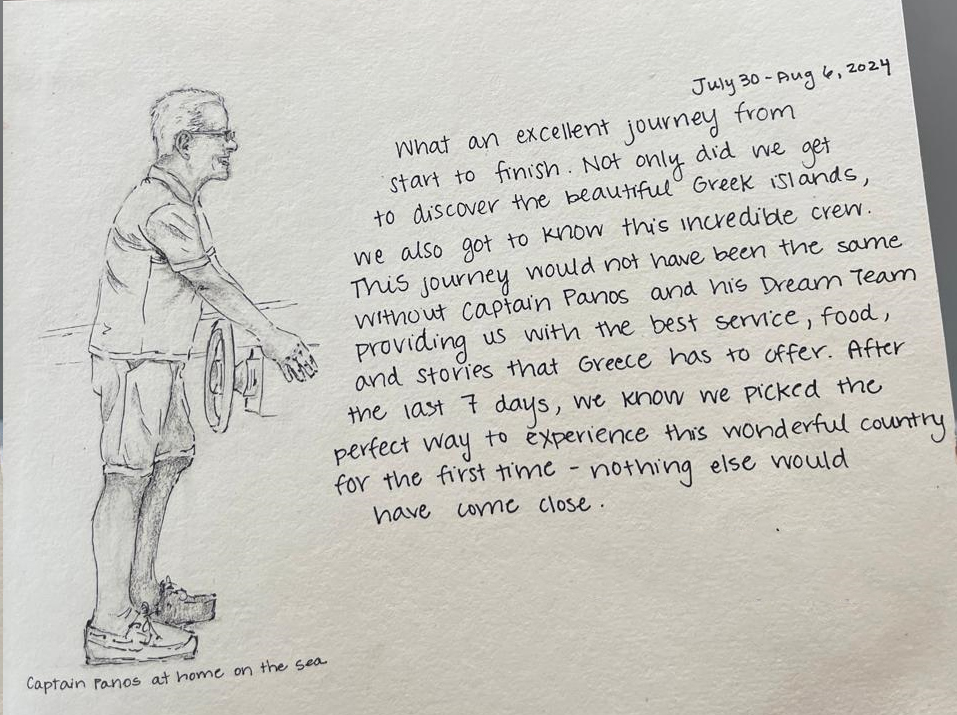 July 30 - Aug 6, 2024
What an excellent journey from
start to finish. Not only did we get
to discover the beautiful Greek islands,
we also got to know this incredible crew.
This journey would not have been the same
without Captain Panos and his Dream Team
providing us with the best service, food,
and stories that Greece has to offer. After
the last 7 days, we know we picked the
perfect way to experience this wonderful country
for the first time - nothing else would
have come close.
Captain Panos at home on the sea